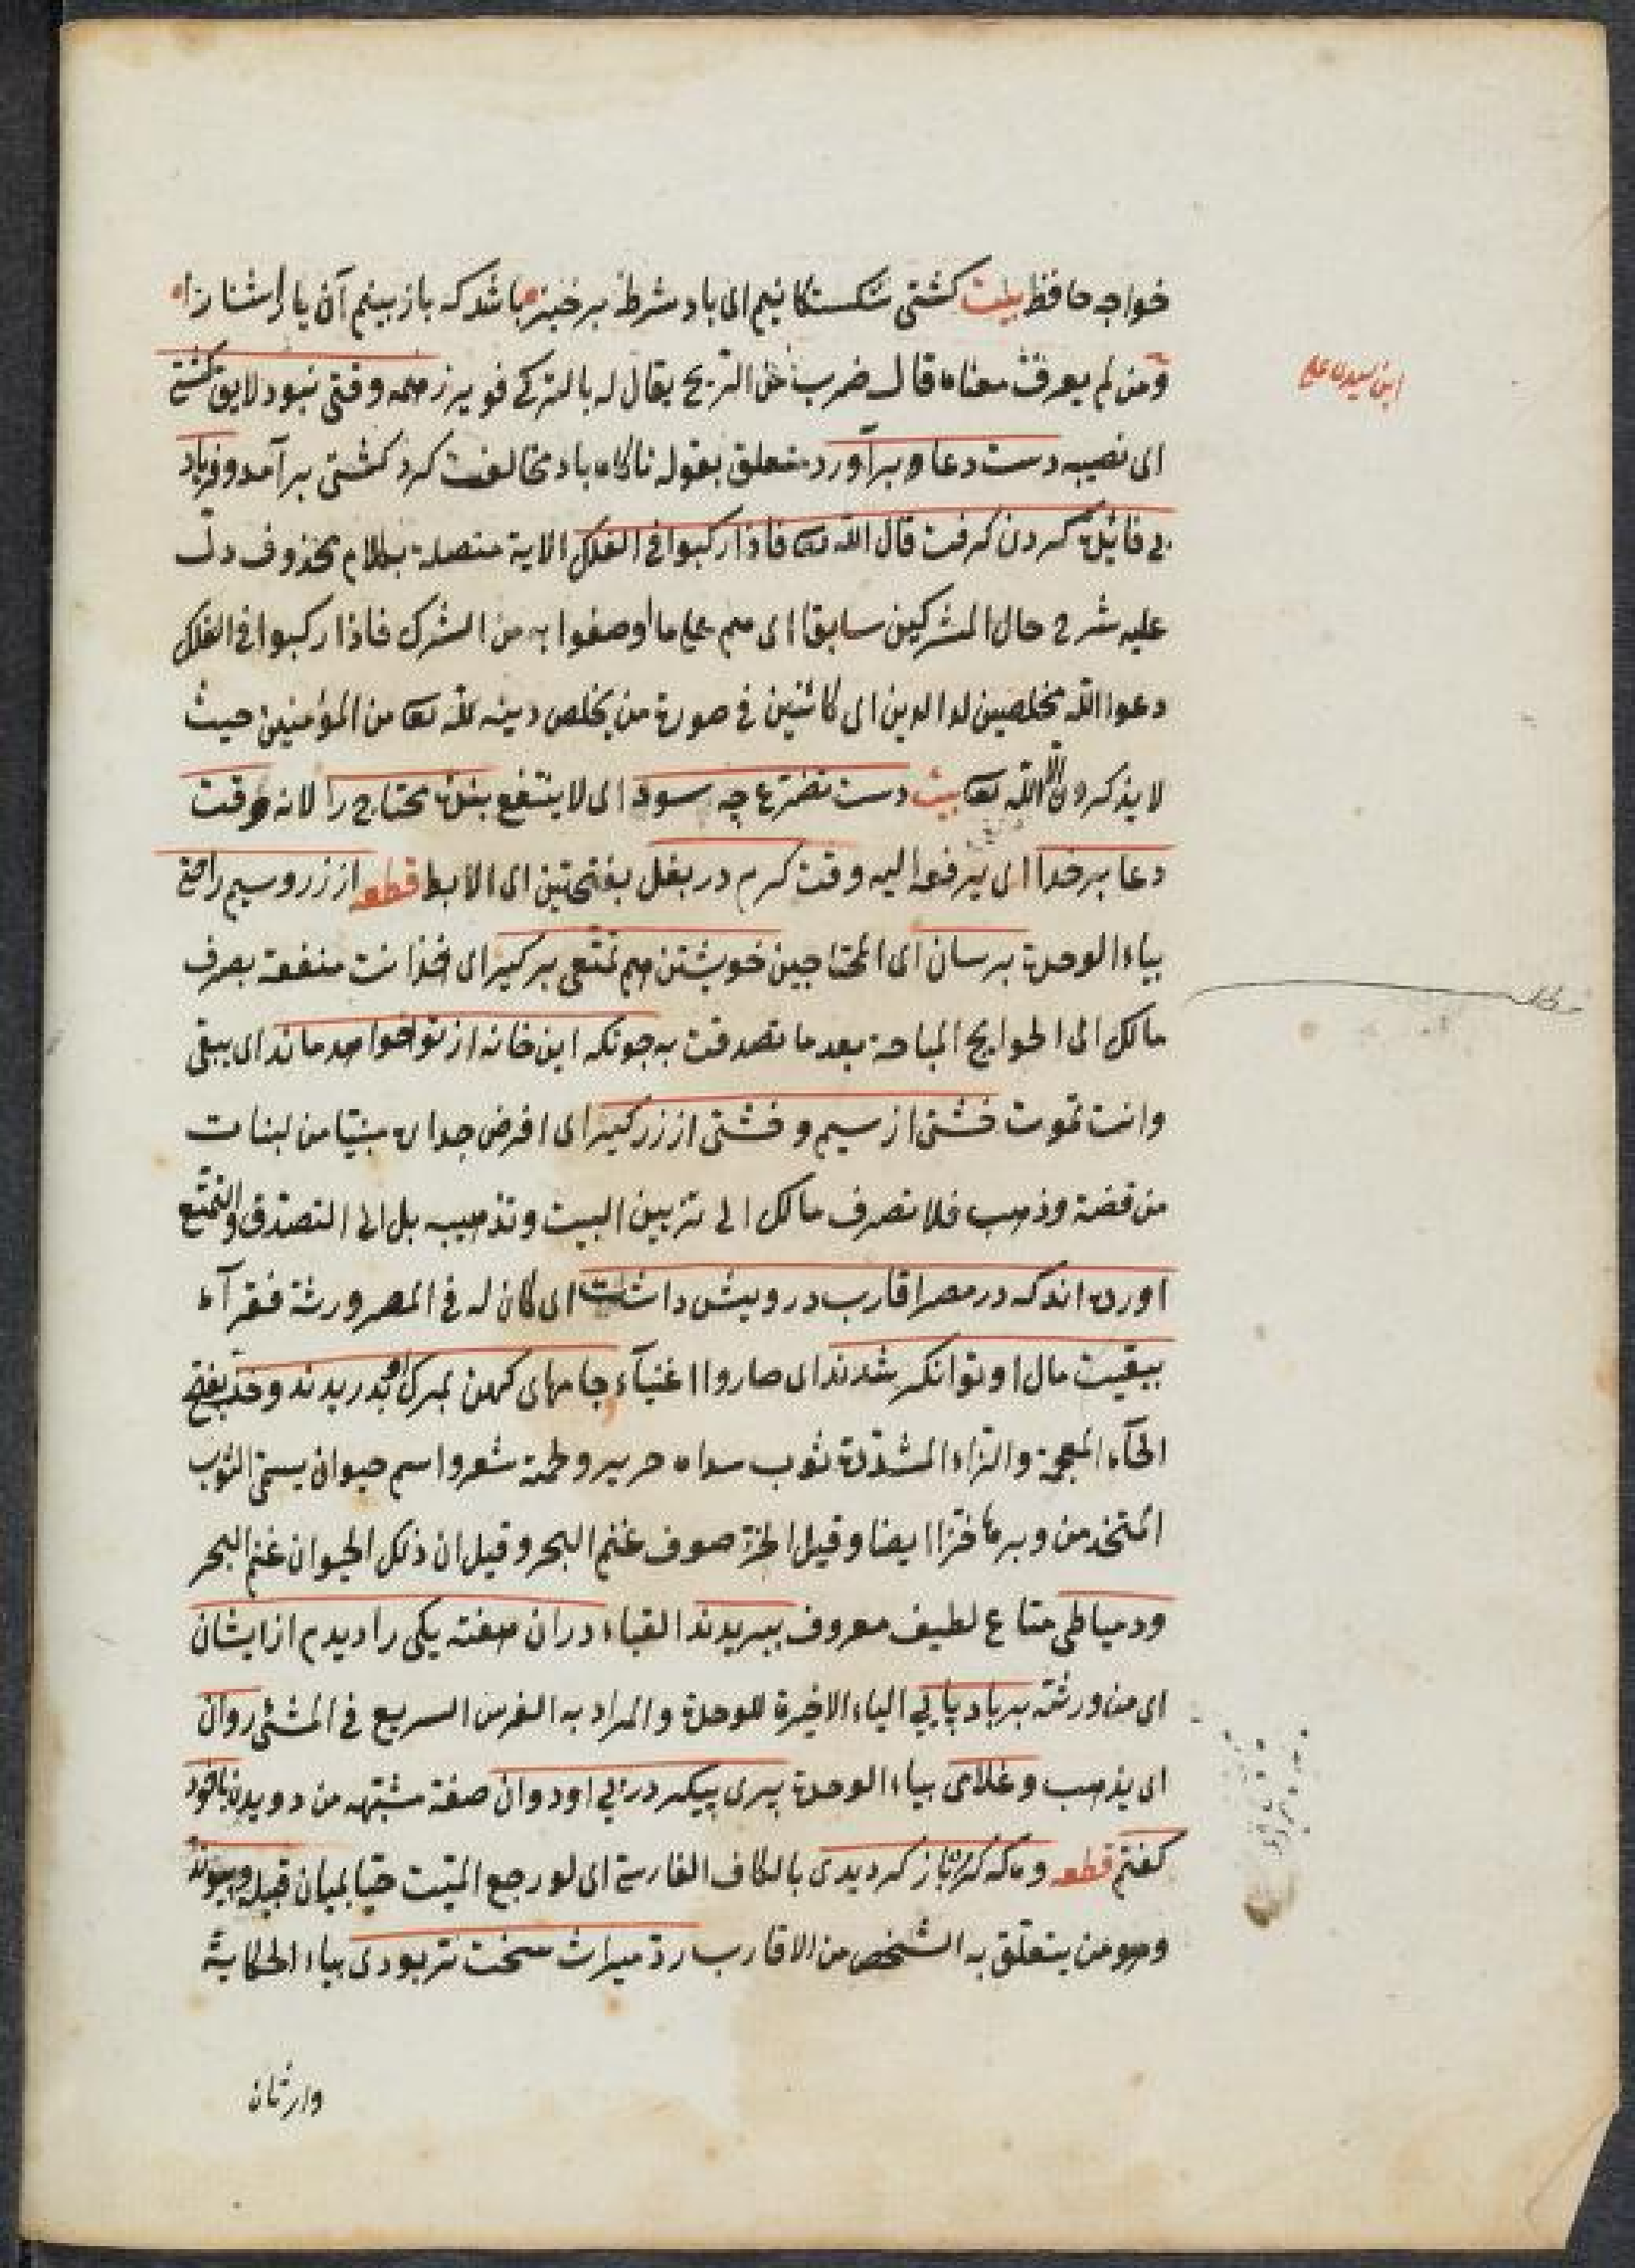 خواجه حافظ بيت كشتى شكستكانيم اى باد شرطه برخيز باشد كه باز بينيم آن يار آشنا را
ابن سيدى على
ومن لم يعرف معناه قال ضرب من الريح يقال له بالتركى همه وقتى نبود لايق كشتى
اى نصيبه دست دعا وبرآورد متعلق بقوله ناكاه باد مخالفت كرد كشتى برآمد وفرياد
بى فائده كردن كرفت قال الله تعا فاذا ركبوا فى الفلك الاية متصلة بكلام محذوف دل
عليه شرح حال المشركين سابقا اى هم على ما وصفوا به من الشرك فاذا ركبوا فى الفلك
دعوا الله مخلصين له الدين اى كائنين فى صورة من يخلص دينه لله تعا من المؤمنين حيث
لا يذكرون الا الله تعا بيت دست تضرع چه سود اى لا ينتفع بنده محتاج را لانه وقت
دعا بر خدا اى يرفعه اليه وقت كرم در بغل بفتحتين اى الابط قطعه از زر وسيم راحتى
بياء الوحدة برسان اى المحتاجين خويشتن هم تمتعى بركير اى فخذ انت منفعة بصرف
مالك الى الحوايج المباحة بعد ما تصدقت به چونكه اين خانه از تو خواهد ماند اى يبقى
وانت تموت خشتى از سيم وخشتى از زر كير اى افرض جداره مبنيا من لبنات
من فضة وذهب فلا تصرف مالك الى تزيين البيت وتذهيبه بل الى التصدق والتمتع
اورده اند كه در مصر اقارب درويش داشت اى كان له فى المصر ورثة فقرآء
ببقيت مال او توانكر شدند اى صاروا اغنيآء جامهاى كهن بمرك او بدريدند وخز بفتح
الخآء المعجمة والزاء المشددة ثوب سداه حرير ولحمة شعر واسم حيوان يسمى الثوب
المتخذ من وبرها خزا ايضا وقيل الخز صوف غنم البحر وقيل ان ذلك الحيوان غنم البحر
ودمياطى متاع لطيف معروف ببريدند القباء در ان هفته يكى را ديدم از ايشان
اى من ورثته بر باد پايى الياء الاخيرة للوحدة والمراد به الفرس السريع فى المشى روان
اى يذهب وغلامى بياء الوحدة پرى پيكر در پى او دوان صفة مشبهه من دويدن با خود
كفتم قطعه وه كه كر مرده باز كرديدى بالكاف الفارسى اى لو رجع الميت حيا بميان قبيله وپيوند
وهو من يتعلق به الشخص من الاقارب رد ميراث سخت تر بودى بياء الحكاية
وارثان